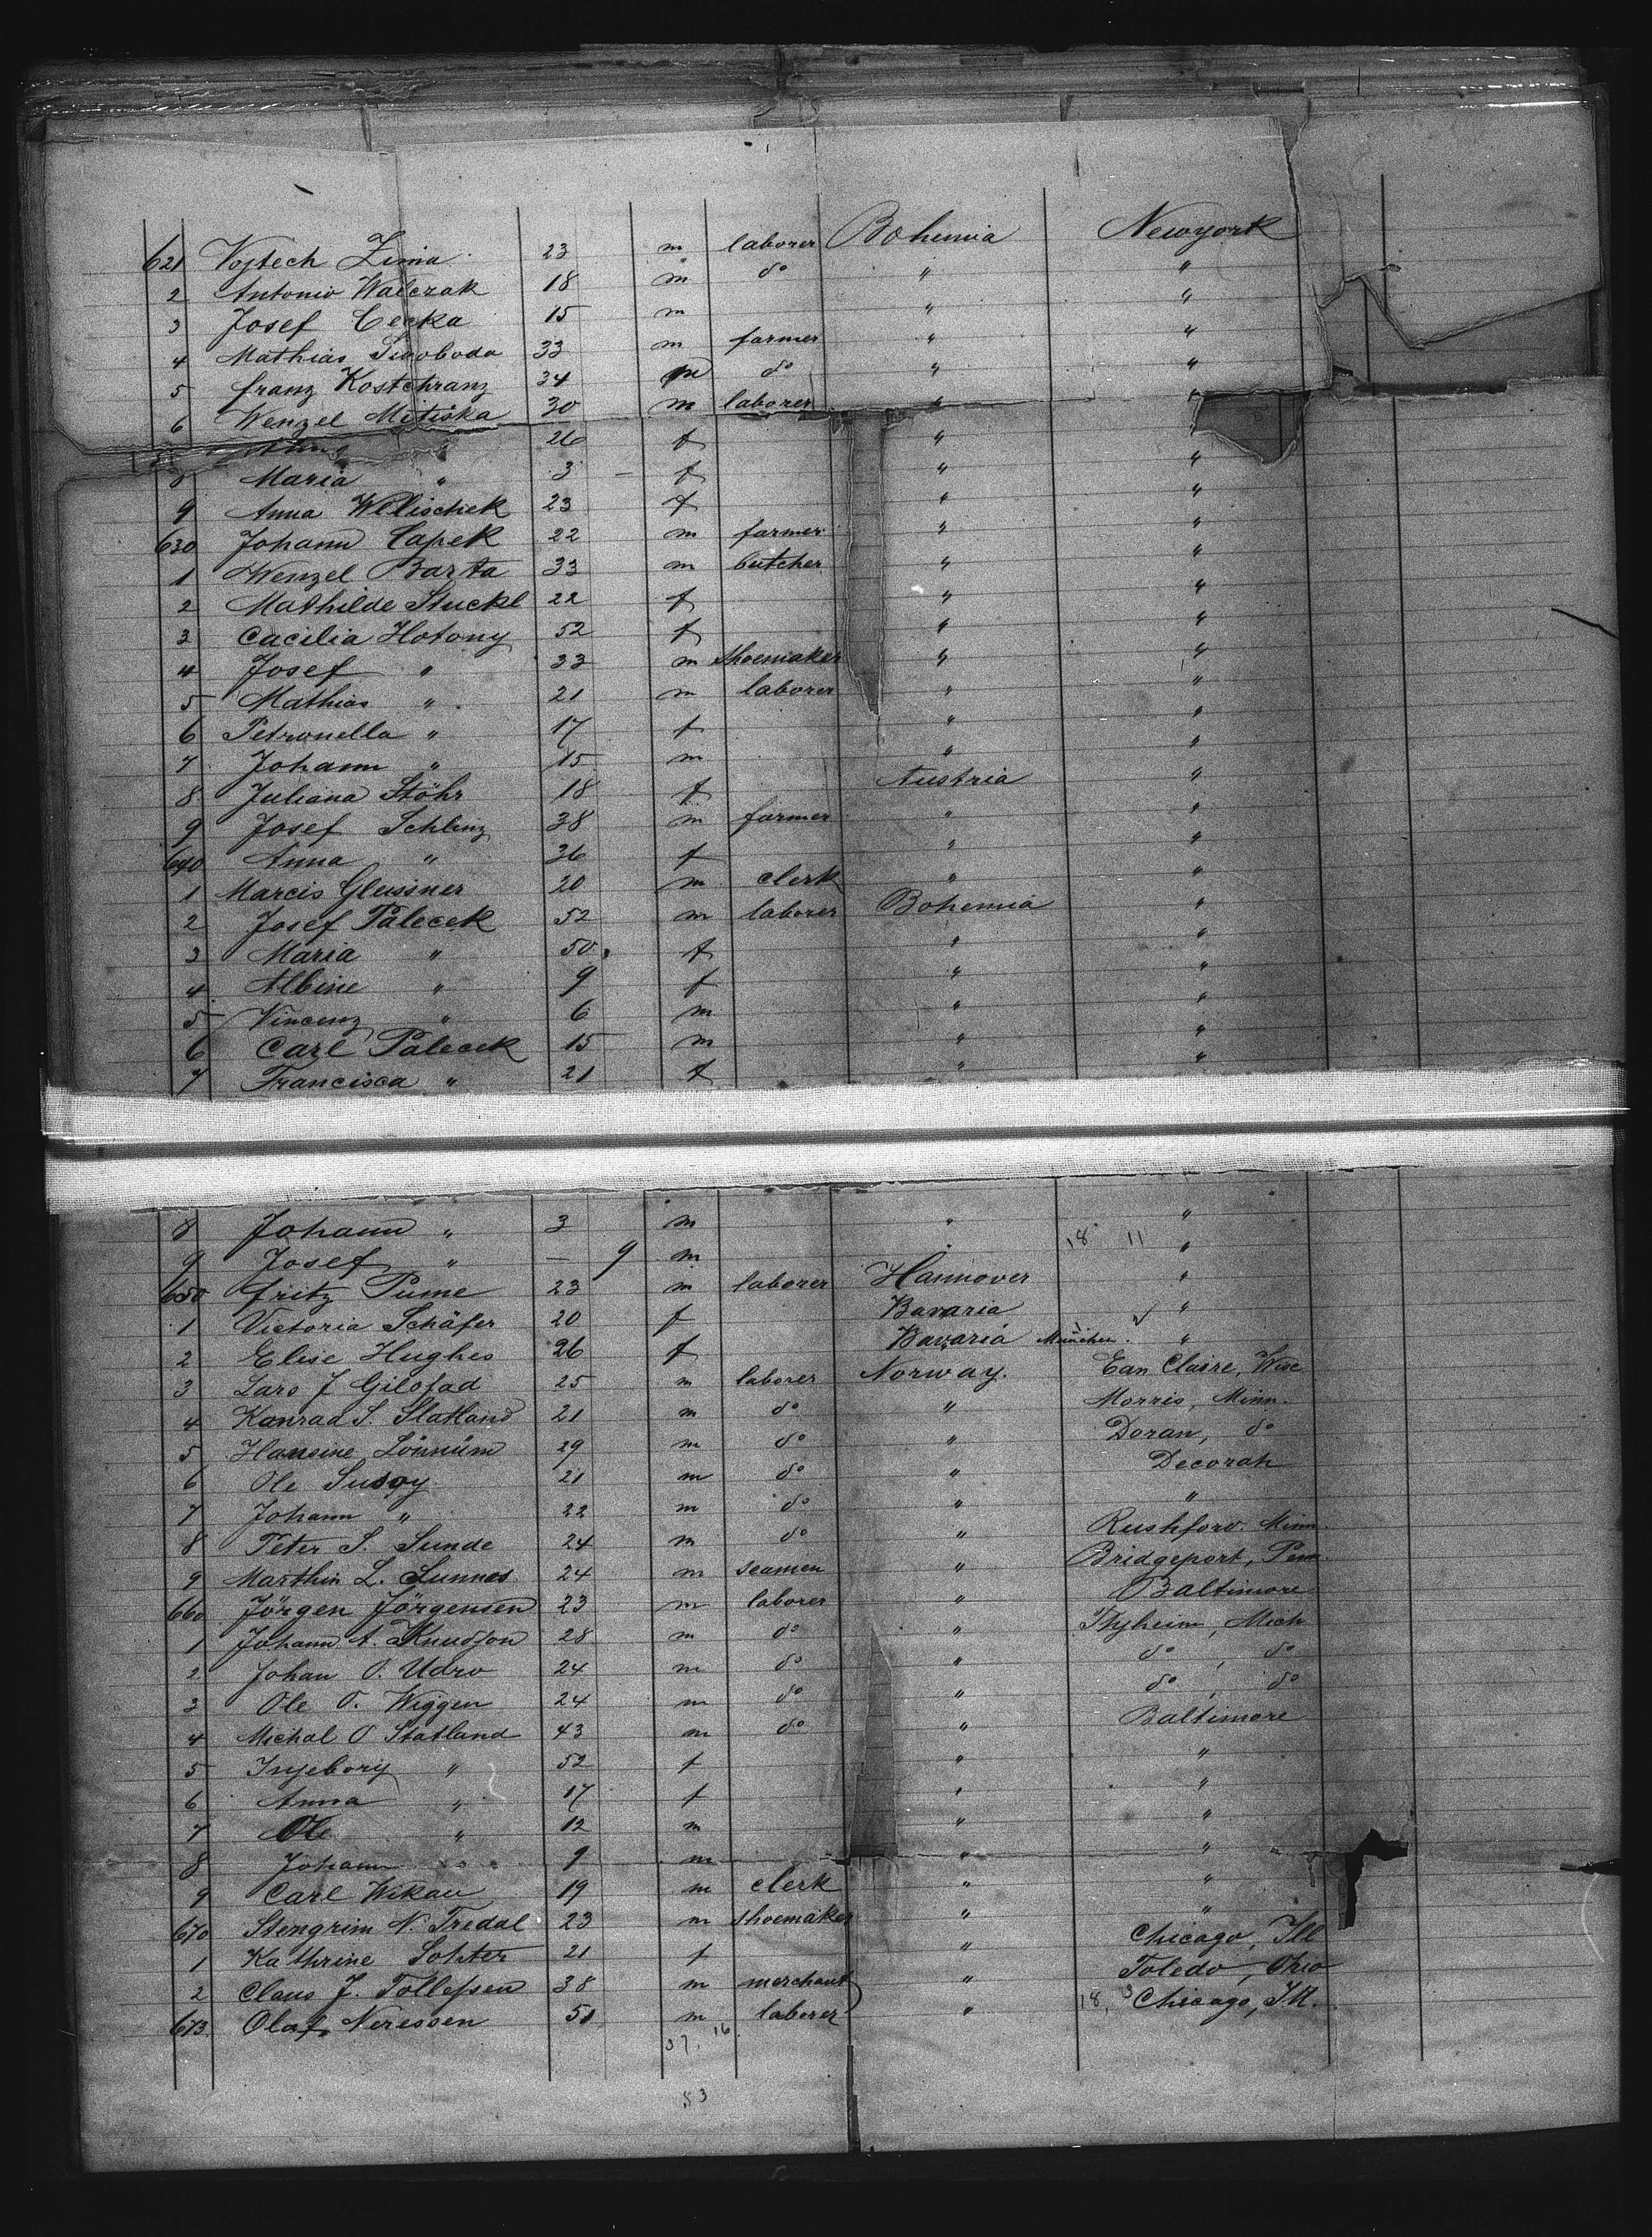 621 Vojtech Zima 23 m laborer Bohemia Newyork
2 Antonio Walczak 18 m do " "
3 Josef Cecka 15 m " "
4 Mathias Swoboda 33 m farmer " "
5 franz Kostchranz 34 m do " "
6 Wenzel Mitiska 30 m laborer " "
Anna 26 f " "
8 Maria " 3 – f " "
9 Anna Wellischek 23 f " "
630 Johann Capek 22 m farmer " "
1 Wenzel Barta 33 m butcher " "
2 Mathilde Stuckl 22 f " "
3 Cacilia Hotony 52 f " "
4 Josef " 33 m shoemaker " "
5 Mathias " 21 m laborer " "
6 Petronella " 17 f " "
7 Johann " 15 m " "
8 Juliana Stöhr 18 f Austria "
9 Josef Schlinz 38 m farmer " "
640 Anna " 36 f " "
1 Marcis Gleissner 20 m clerk " "
2 Josef Palecek 52 m laborer Bohemia "
3 Maria " 50 f " "
4 Albine " 9 f " "
5 Vincenz " 6 m " "
6 Carl Palecek 15 m " "
7 Francisca " 21 f " "
8 Johann " 3 m " "
9 Josef " – 9 m " 18 11 "
650 fritz Pume 23 m laborer Hannover "
1 Victoria Schäfer 20 f Bavaria "
2 Elise Hughes 26 f Bavaria München "
3 Lars J Gilofad 25 m laborer Norway. Eau Claire, Wisc
4 Konrad S. Slatland 21 m do " Morris, Minn.
5 Hansine Lönnüm 29 m do " Doran, do
6 Ole Susoy 21 m do " Decorah
7 Johann " 22 m do " "
8 Peter S. Sunde 24 m do " Rushford. Minn.
9 Marthin L. Sunnes 24 m seamen " Bridgeport, Pen.
660 Jörgen Jörgensen 23 m laborer " Baltimore
1 Johann A. Knudson 28 m do " Thyheim, Mich
2 Johan O. Udro 24 m do " do , do
3 Ole O. Wiggen 24 m do " do , do
4 Michal O Statland 43 m do " Baltimore
5 Ingeborg " 52 f " "
6 Anna " 17 f " "
7 Ole " 12 m " "
8 Johann 9 m " "
9 Carl Wikau 19 m clerk " "
670 Stengrim N. Tredal 23 m shoemaker " "
1 Kathrine Sohter 21 f " Chicago, Ill
2 Claus J. Tollefsen 38 m merchant " Toledo, Ohio
673 Olaf Neressen 51 m laborer " 18, 3 Chicago, Ill.
37. 16
53